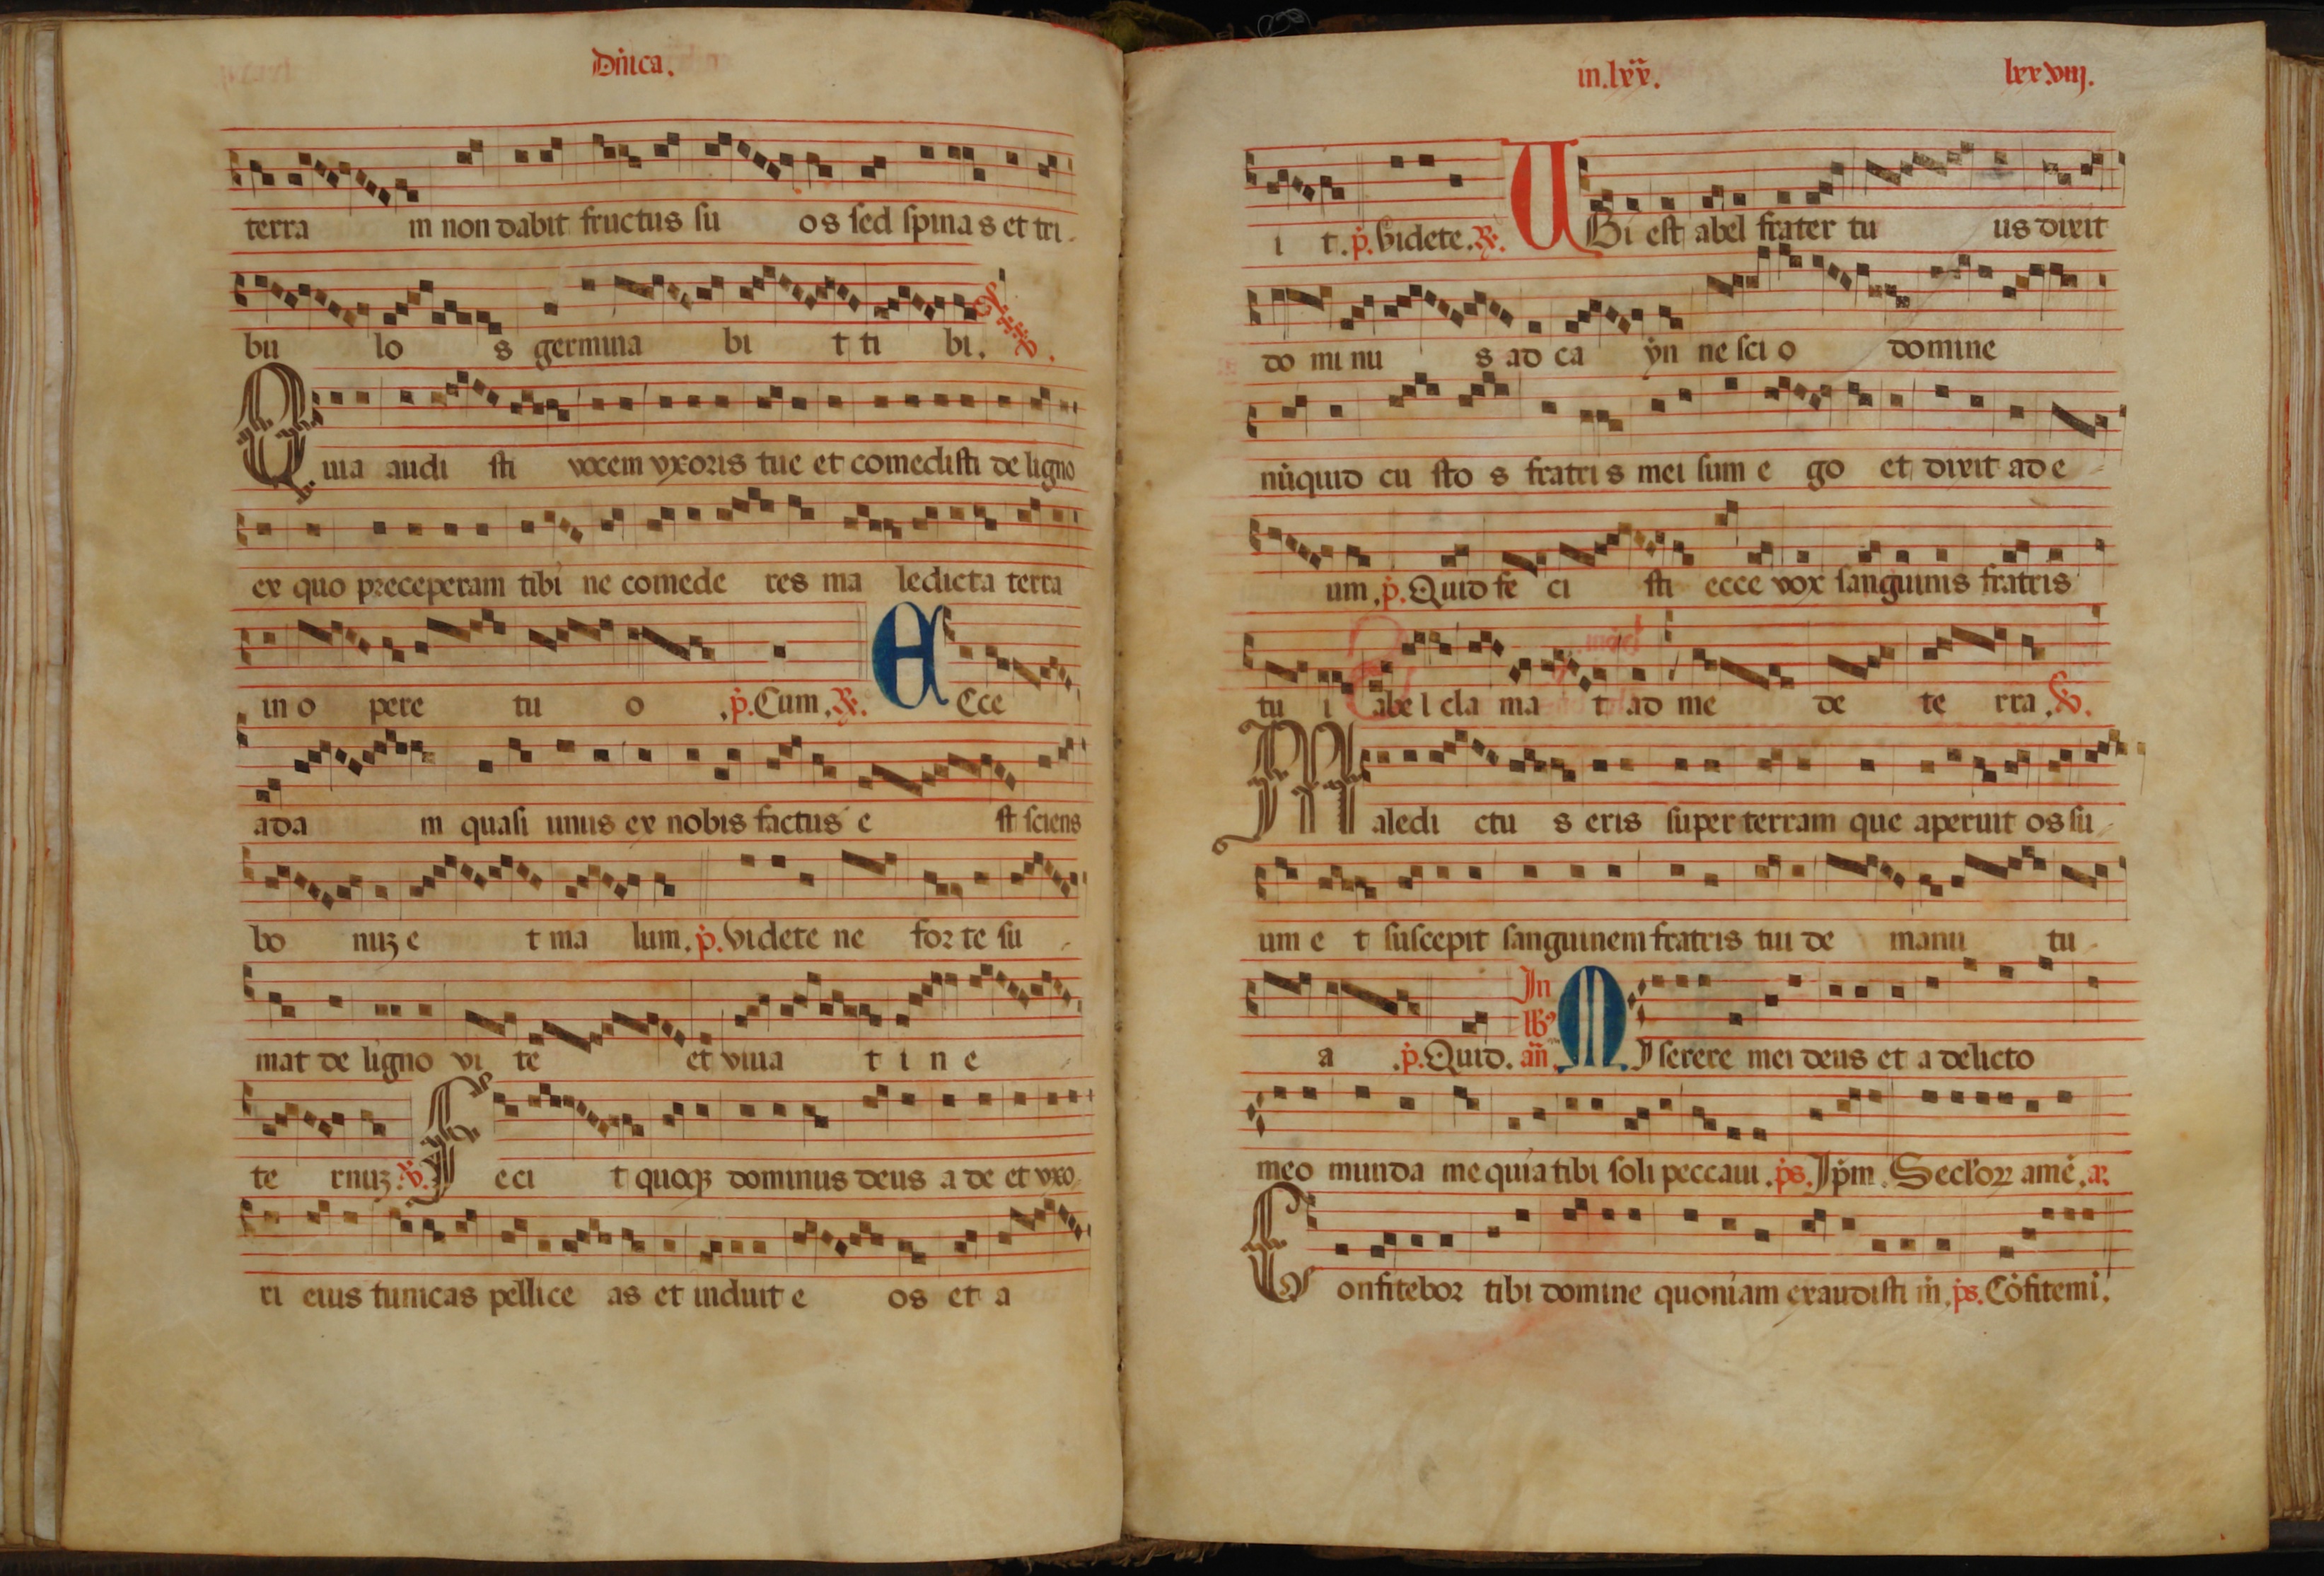 Dn̄ica.
terra m non dabit fructus su os sed spina s et tri
bu lo s germina bi t ti bi.
Quia audi sti vocem vxoris tue et comedisti de ligno
ex quo preceperam tibi ne comede res ma ledicta terra
in o pere tu o .p̄. Cum. R. Ecce
ada m quasi unus ex nobis factus e st sciens
bo nuꝫ e t ma lum. p̄. videte ne for te su
mat de ligno vi te et viua t i n e
te rnuꝫ. v. Feci t quoqꝫ dominus deus a de et vxo
ri eius tunicas pellice as et induit e os et a
in. lxx̄. lxxviij.
i t. p̄. Videte. R. UBi est abel frater tu us dixit
do mi nu s ad ca yn ne sci o domine
nūquid cu sto s fratri s mei sum e go et dixit ad e
um. p̄. Quid fe ci sti ecce vox sanguinis fratris
tu i abe l cla ma t ad me de te rra. v.
Maledi ctu s eris super terram que aperuit os su
um e t suscepit sanguinem fratris tui de manu tu
a .p̄. Quid. In lb᷒ an̄. MIserere mei deus et a delicto
meo munda me quia tibi soli peccaui. ps. Ip̄m. Seclorꝝ amē. a.
Confitebor tibi domine quoniam exaudisti m̄. ps. Cōfitemi.